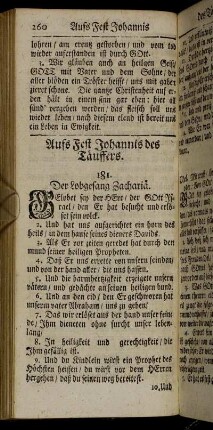 260 Aufs Fest Johannis
lohren / am creutz gestorben / und vom tod
wieder auferstanden ist durch GOtt.
3. Wir gläuben auch an heilgen Geist /
GOTT mit Vater und dem Sohne / der
aller blöden ein Tröster heist / uns mit gaben
zieret schone. Die gantze Christenheit auf er-
den hält in einem sinn gar eben; hier all
sünd vergeben werden / das fleisch soll uns
wieder leben: nach diesem elend ist bereit uns
ein leben in Ewigkeit.
Aufs Fest Johannis des
Täuffers.
181.
Der Lobgesang Zachariä.
Gelobet sey der HErr / der GOtt Js-
rael / denn Er hat besucht und erlö-
set sein volck.
2. Und hat uns aufgerichtet ein horn des
heils / in dem hause seines dieners Davids.
3. Als Er vor zeiten geredet hat durch den
mund seiner heiligen Propheten.
4. Daß Er uns errettet von unsern feinden /
und von der hand aller / die uns hassen.
5. Und die barmhertzigkeit erzeigete unsern
vätern / und gedächte an seinen heiligen bund.
6. Und an den eid / den Er geschworen hat
unserm vater Abraham / uns zu geben /
7. Das wir erlöset aus der hand unser fein-
de / Ihm dieneten ohne furcht unser lebe-
lang /
8. In heiligkeit und gerechtigkeit / die
Ihm gefällig ist.
9. Und du Kindlein wirst ein Prophet des
Höchsten heissen / du wirst vor dem HErrn
hergehen / daß du seinen weg bereitest.
10. Und